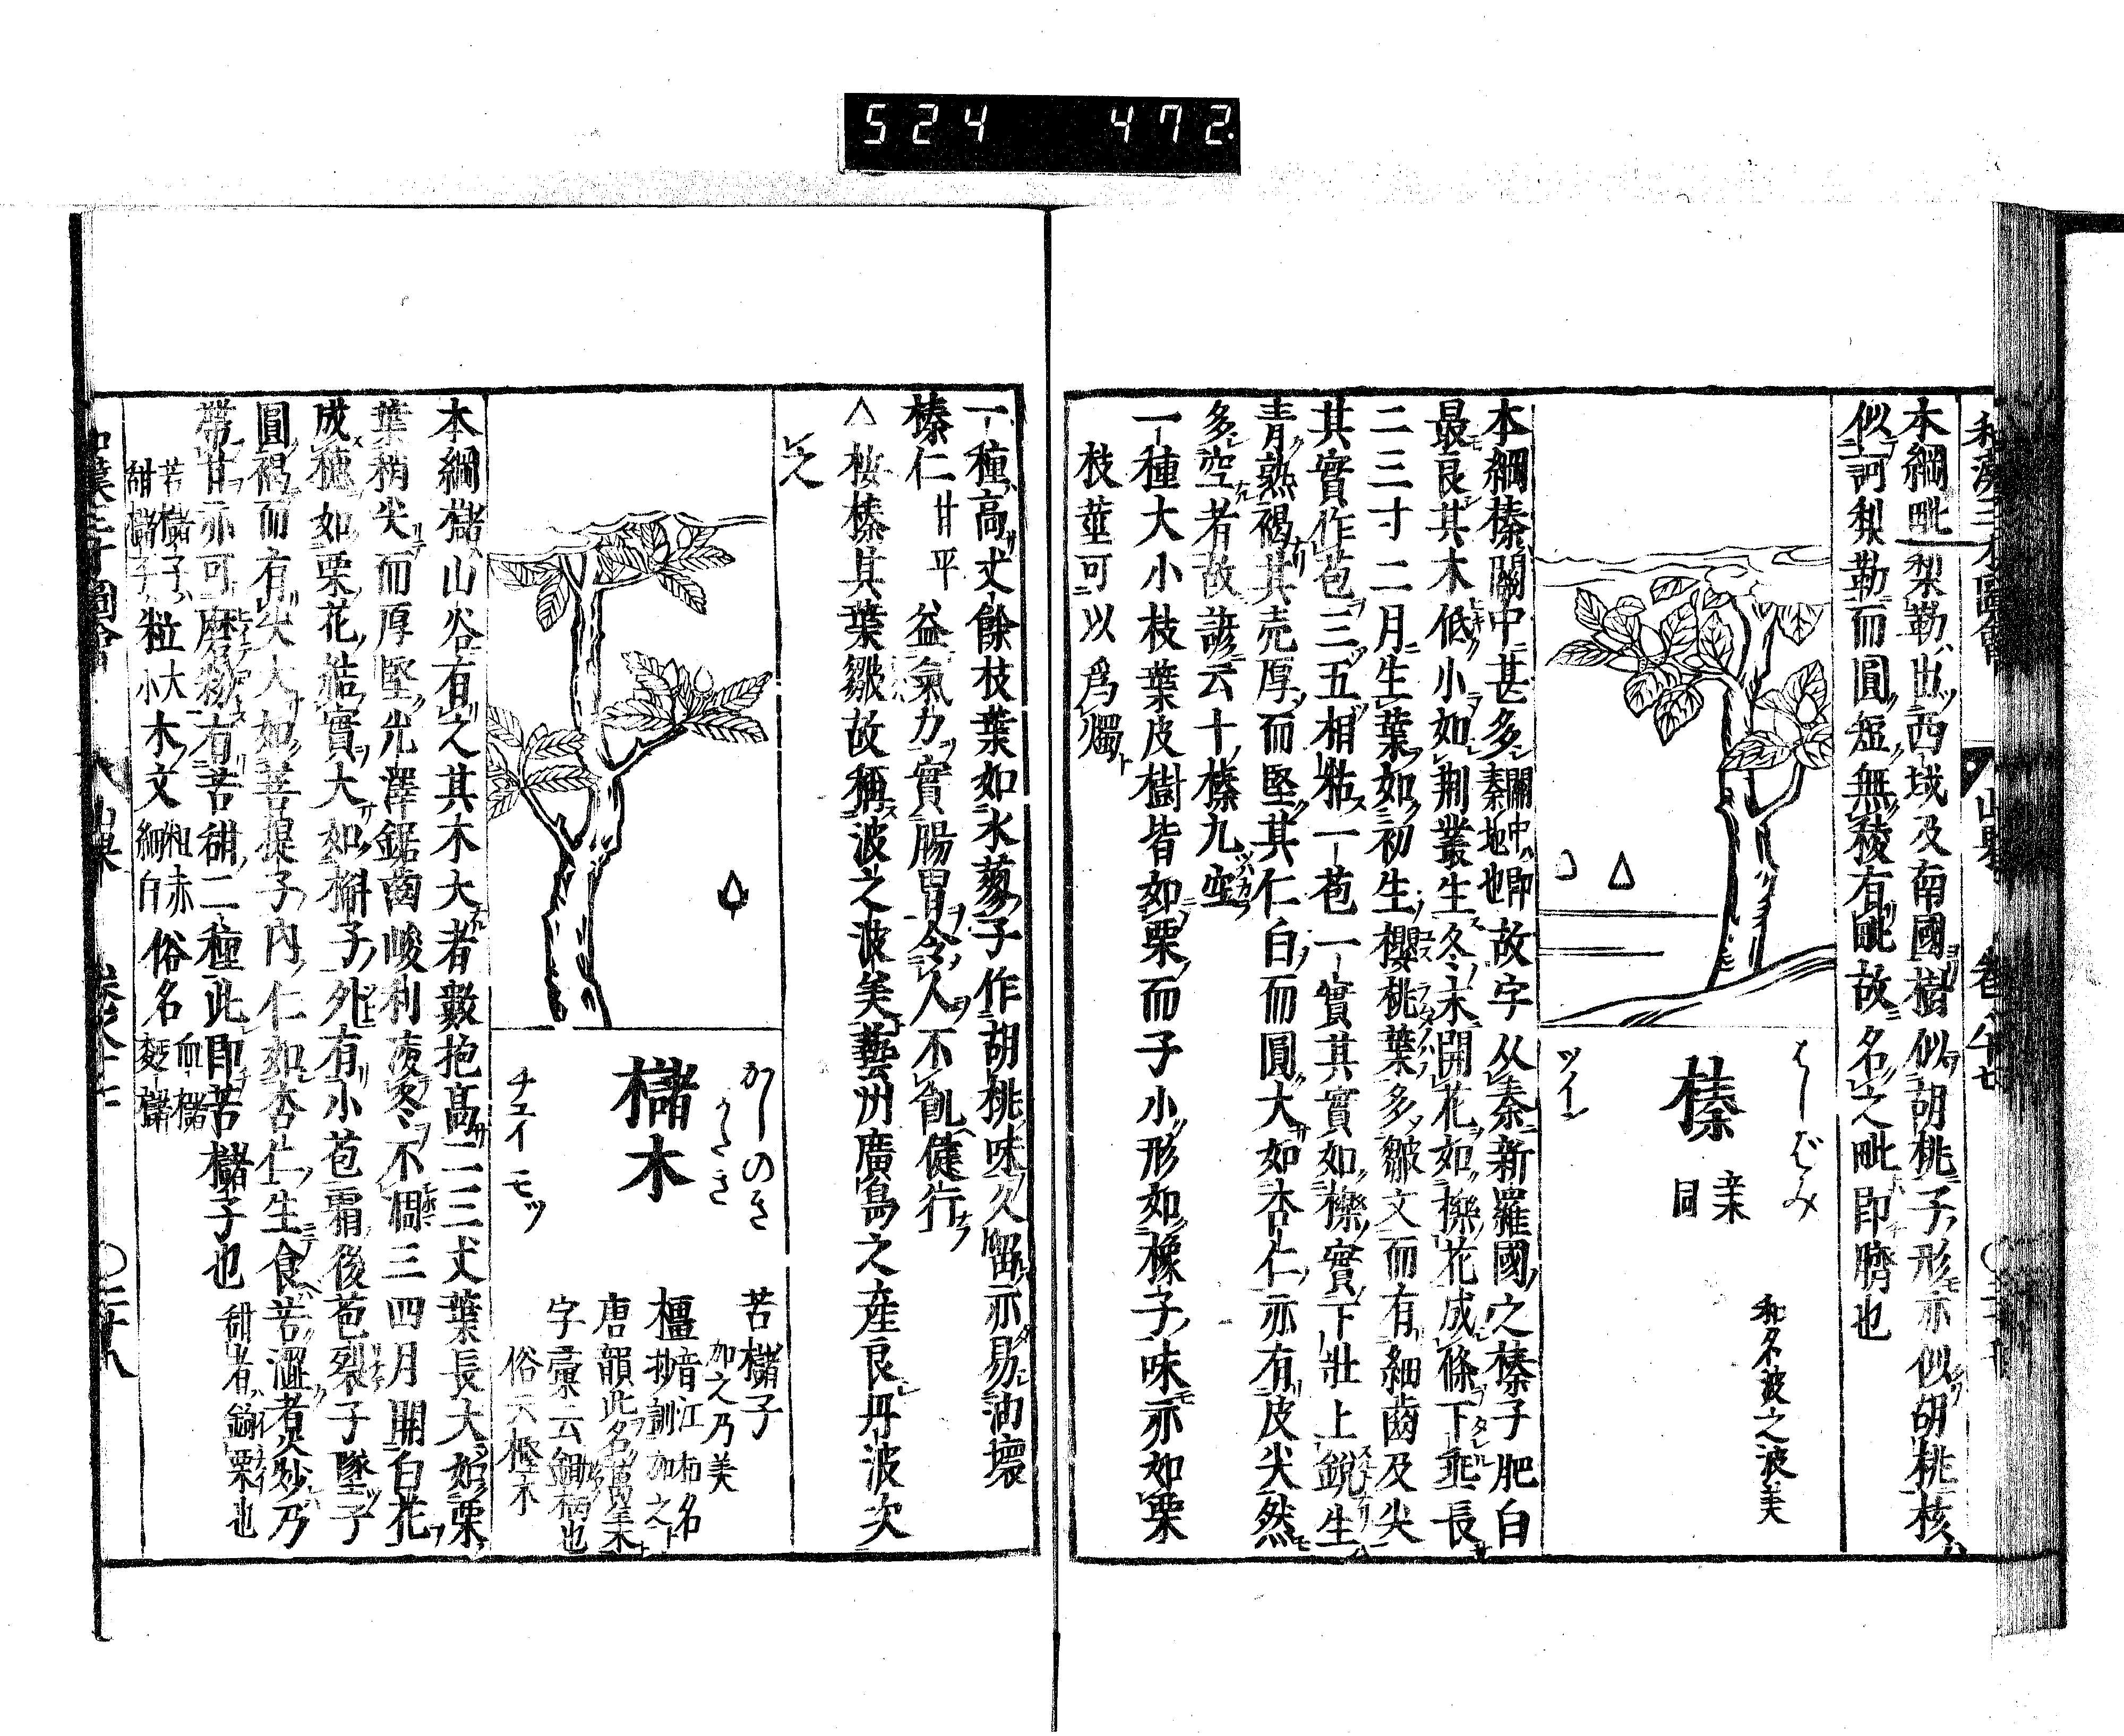 524 472
本綱毗梨勒出西域及南國樹似胡桃子形亦似胡桃核
似訶梨勒而圓短無稜有毗故名之毗即臍也
はしばみ
榛
亲同
ツイン
和名波之波美
本綱榛關中甚多關中即秦地也故字从秦新羅國之榛子肥白
最良其木低小如荆叢生冬末開花如櫟花成條下垂長
二三寸二月生葉如初生櫻桃葉多皺文而有細齒及尖
其實作苞三五相粘一苞一實其實如櫟實下壯上銳生
青熟褐其壳厚而堅其仁白而圓大如杏仁亦有皮尖然
多空者故諺云十榛九空
一種大小枝葉皮樹皆如栗而子小形如橡子味亦如栗
枝莖可以爲燭
一種高丈餘枝葉如水蓼子作胡桃味久留亦易油壞
榛仁甘平益氣力實腸胃令人不飢健行
△按榛其葉皺故稱波之波美藝州廣島之產良丹波次
之
かしのき
櫧木
チュイモツ
苦櫧子
加之乃美
橿音江和名抄訓加之
唐韻此名萬年木
字彙云鋤柄也
本綱櫧山谷有之其木大者數抱高二三丈葉長大如栗
葉稍尖而厚堅光澤鋸齒峻利凌冬不凋三四月開白花
成穗如栗花結實大如槲子外有小苞霜後苞裂子墜子
圓褐而有尖大如菩提子內仁如杏仁生食苦澀煮炒乃
帶甘亦可磨粉有苦甜二種此即苦櫧子也甜者鉤栗也
苦櫧子粒大木文粗赤俗名血櫧
甜櫧子粒小木文細白俗名麪櫧